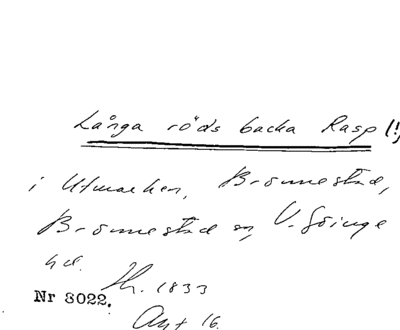 Långa röds backa Rasp (!)
i Utmarken, Brönnestad,
Brönnestad sn, V. Göinge
hd. Th. 1833
Nr 3022.
Ant 16.